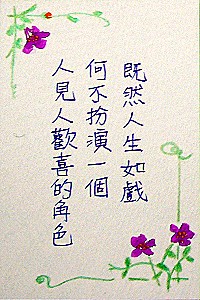 既然人生如戲
何不扮演一個
人見人歡喜的角色